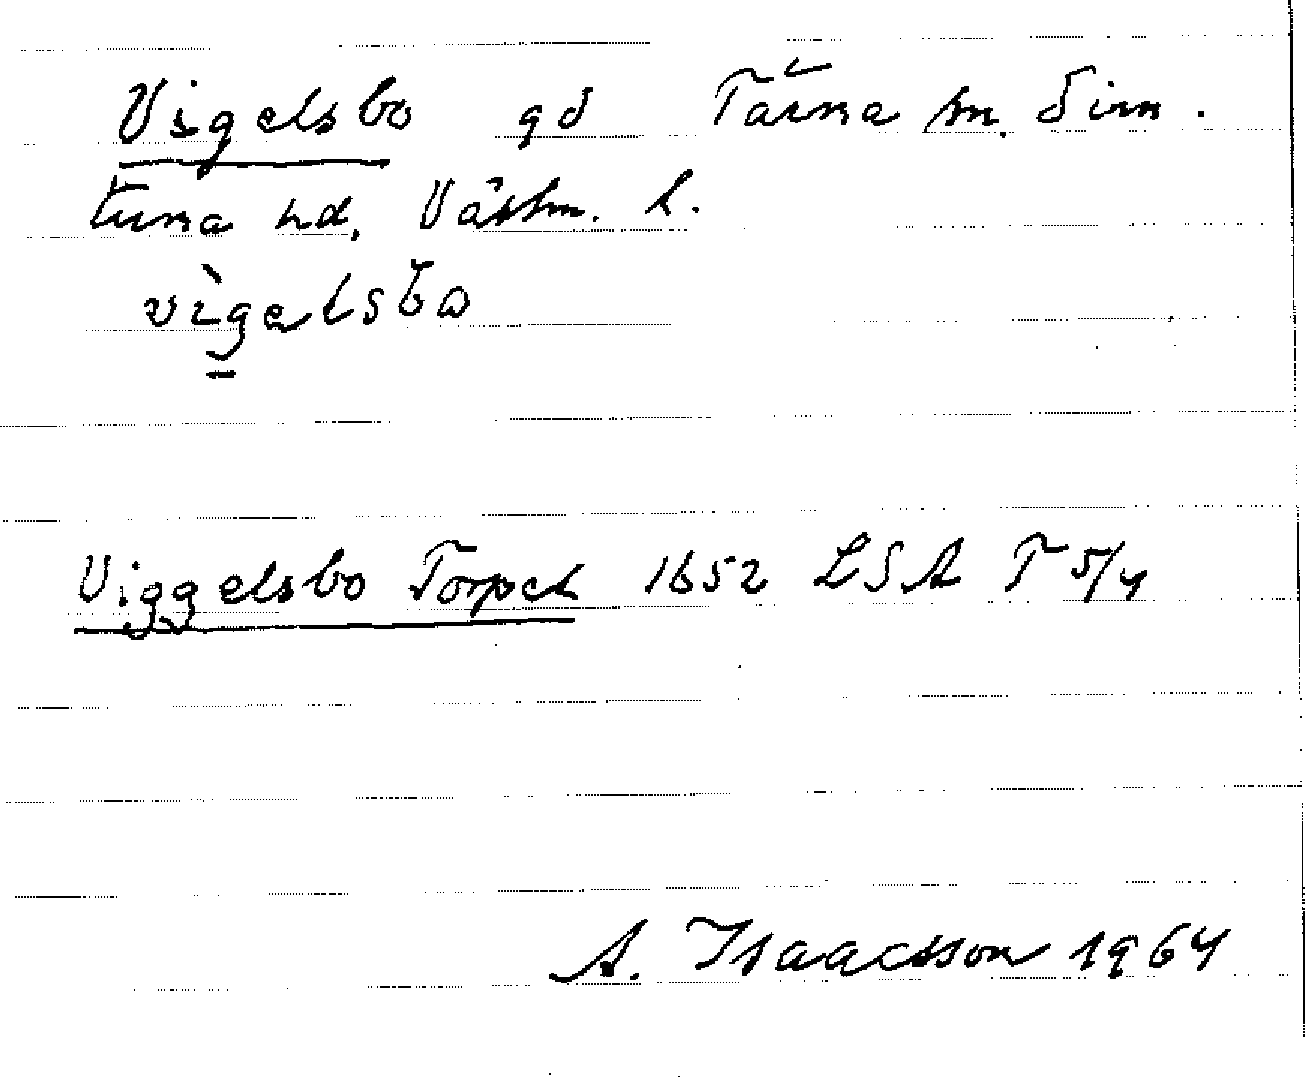 Vigelsbo gd Tärna sn. Sim.
tuna hd, Västm. l.
vìgelsbo
Viggelsbo Torpet 1652 LSA T 5/4
A. Isaacsson 1964